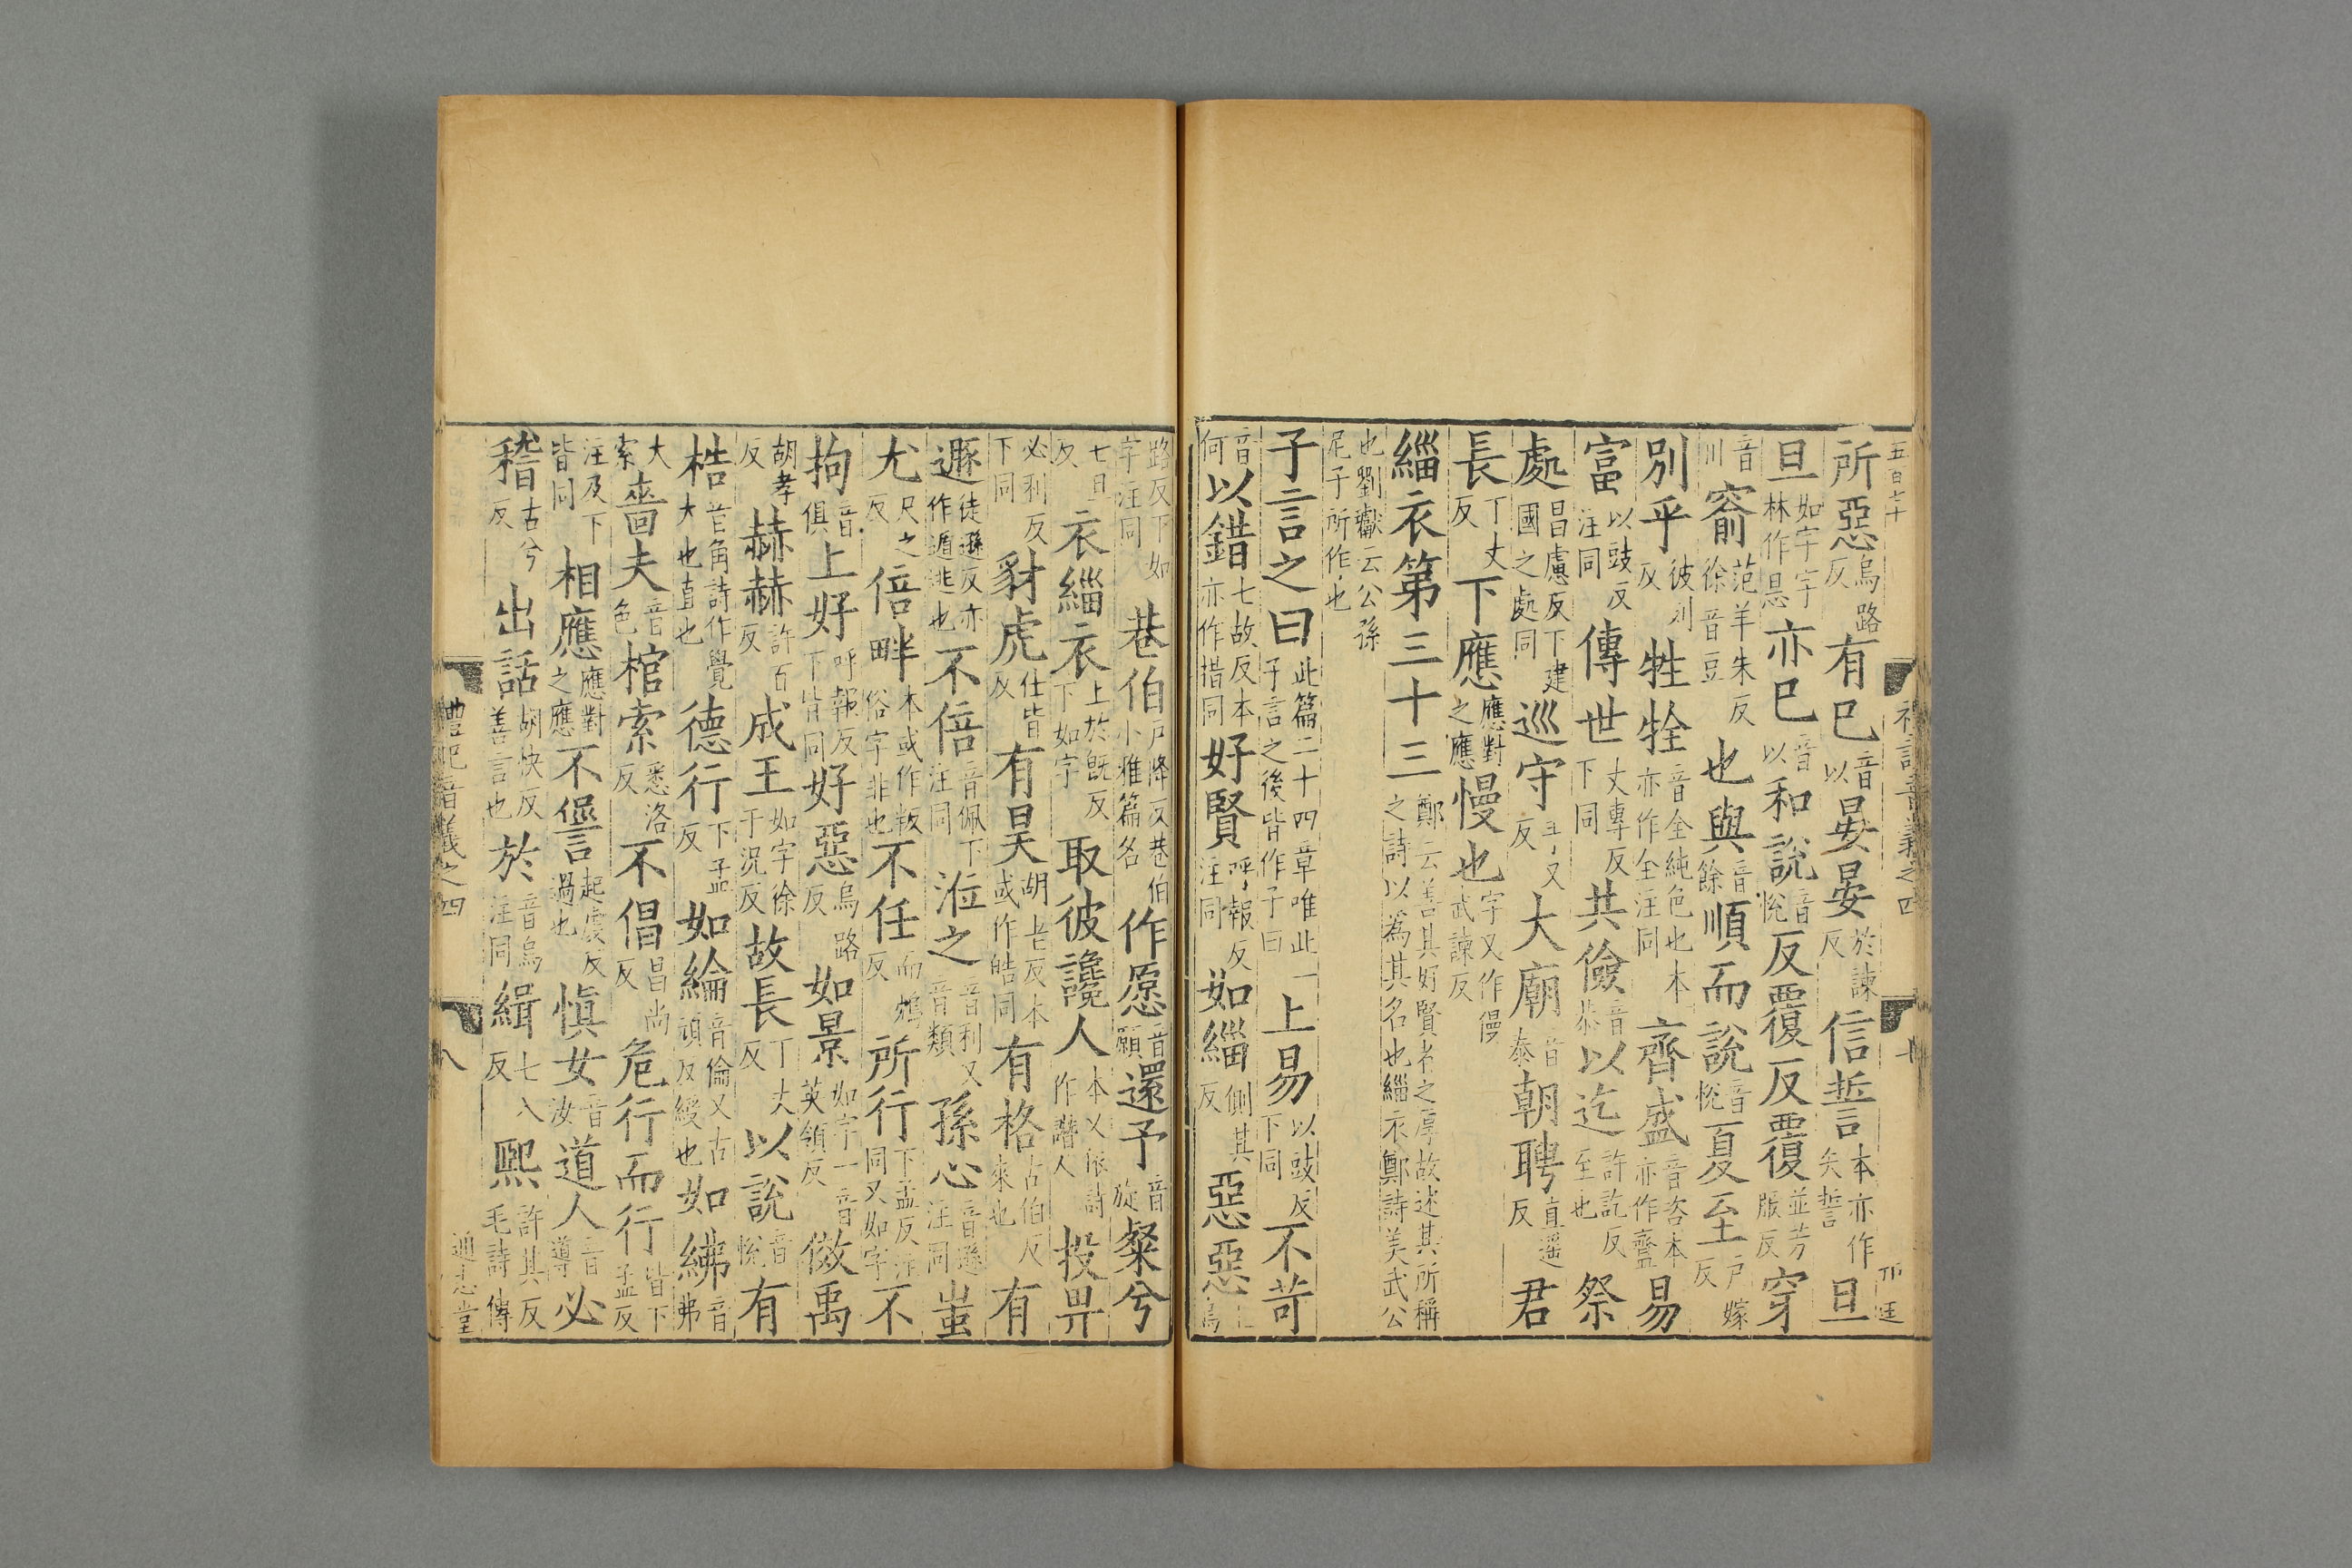 五百七十
禮記音義之四
七
所惡烏路反有巳音以晏晏於諫反信誓本亦作矢誓旦
旦如字字林作㫜亦巳音以和說音悅反覆反覆並芳服反穿
音川窬范羊朱反徐音豆也與音餘順而說音悅夏至戶嫁反
別乎彼列反牲牷音全純色也本亦作全注同齊盛音咨本亦作齍易
富以豉反注同傳世丈專反下同共儉音恭以迄許訖反至也祭
處昌慮反下建國之處同巡守手又反大廟音泰朝聘直遥反君
長丁丈反下應應對之應慢也字又作僈武諫反
緇衣第三十三鄭云善其好賢者之厚故述其所稱之詩以為其名也緇衣鄭詩美武公
也劉瓛云公孫尼子所作也
子言之曰此篇二十四章唯此一子言之後皆作子曰上易以豉反下同不苛
音何以錯七故反本亦作措同好賢呼報反注同如緇側其反惡惡上烏
路反下如字注同巷伯戶降反巷伯小雅篇名作愿音願還予音旋粲兮
七旦反衣緇衣上於旣反下如字取彼讒人本又依詩作譖人投畀
必利反下同豺虎仕皆反有昊胡老反本或作皓同有格古伯反來也有
遯徒遜反亦作遁逃也不倍音佩下注同涖之音利又音類孫心音遜注同蚩
尤尺之反倍畔本或作叛俗字非也不任而鴆反所行下孟反注同又如字不
拘音俱上好呼報反下皆同好惡烏路反如景如字一音英領反傚禹
胡孝反赫赫許百反成王如字徐于況反故長丁丈反以說音悅有
梏音角詩作覺大也直也德行下孟反如綸音倫又古頑反綬也如綍音弗
大索嗇夫音色棺索悉洛反不倡昌尚反危行而行皆下孟反
注及下皆同相應應對之應不諐起虔反過也愼女音汝道人音導必
稽古兮反出話胡快反善言也於音烏注同緝七入反熙許其反毛詩傳
禮記音義之四
八
通志堂